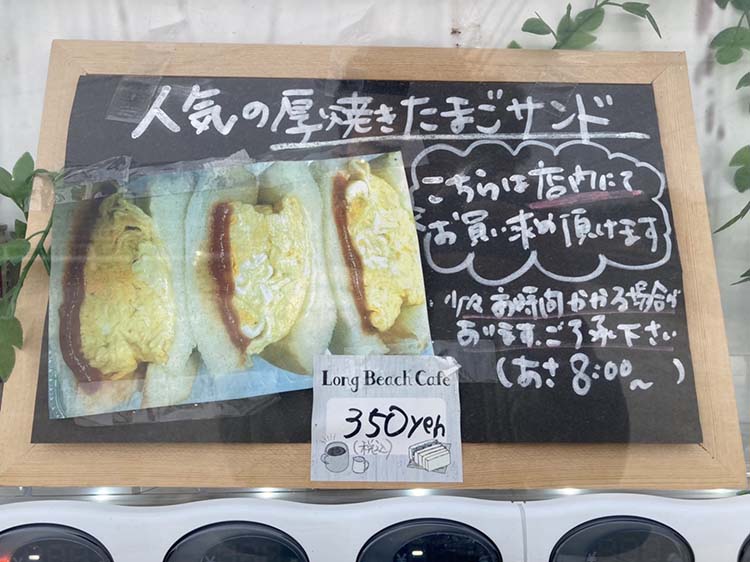 人気の厚焼きたまごサンド
こちらは店内にて
お買い求め頂けます
少々お時間かかる場合が
あります。ご了承下さい
(あさ8:00〜)
Long Beach Cafe
350yen
(税込)